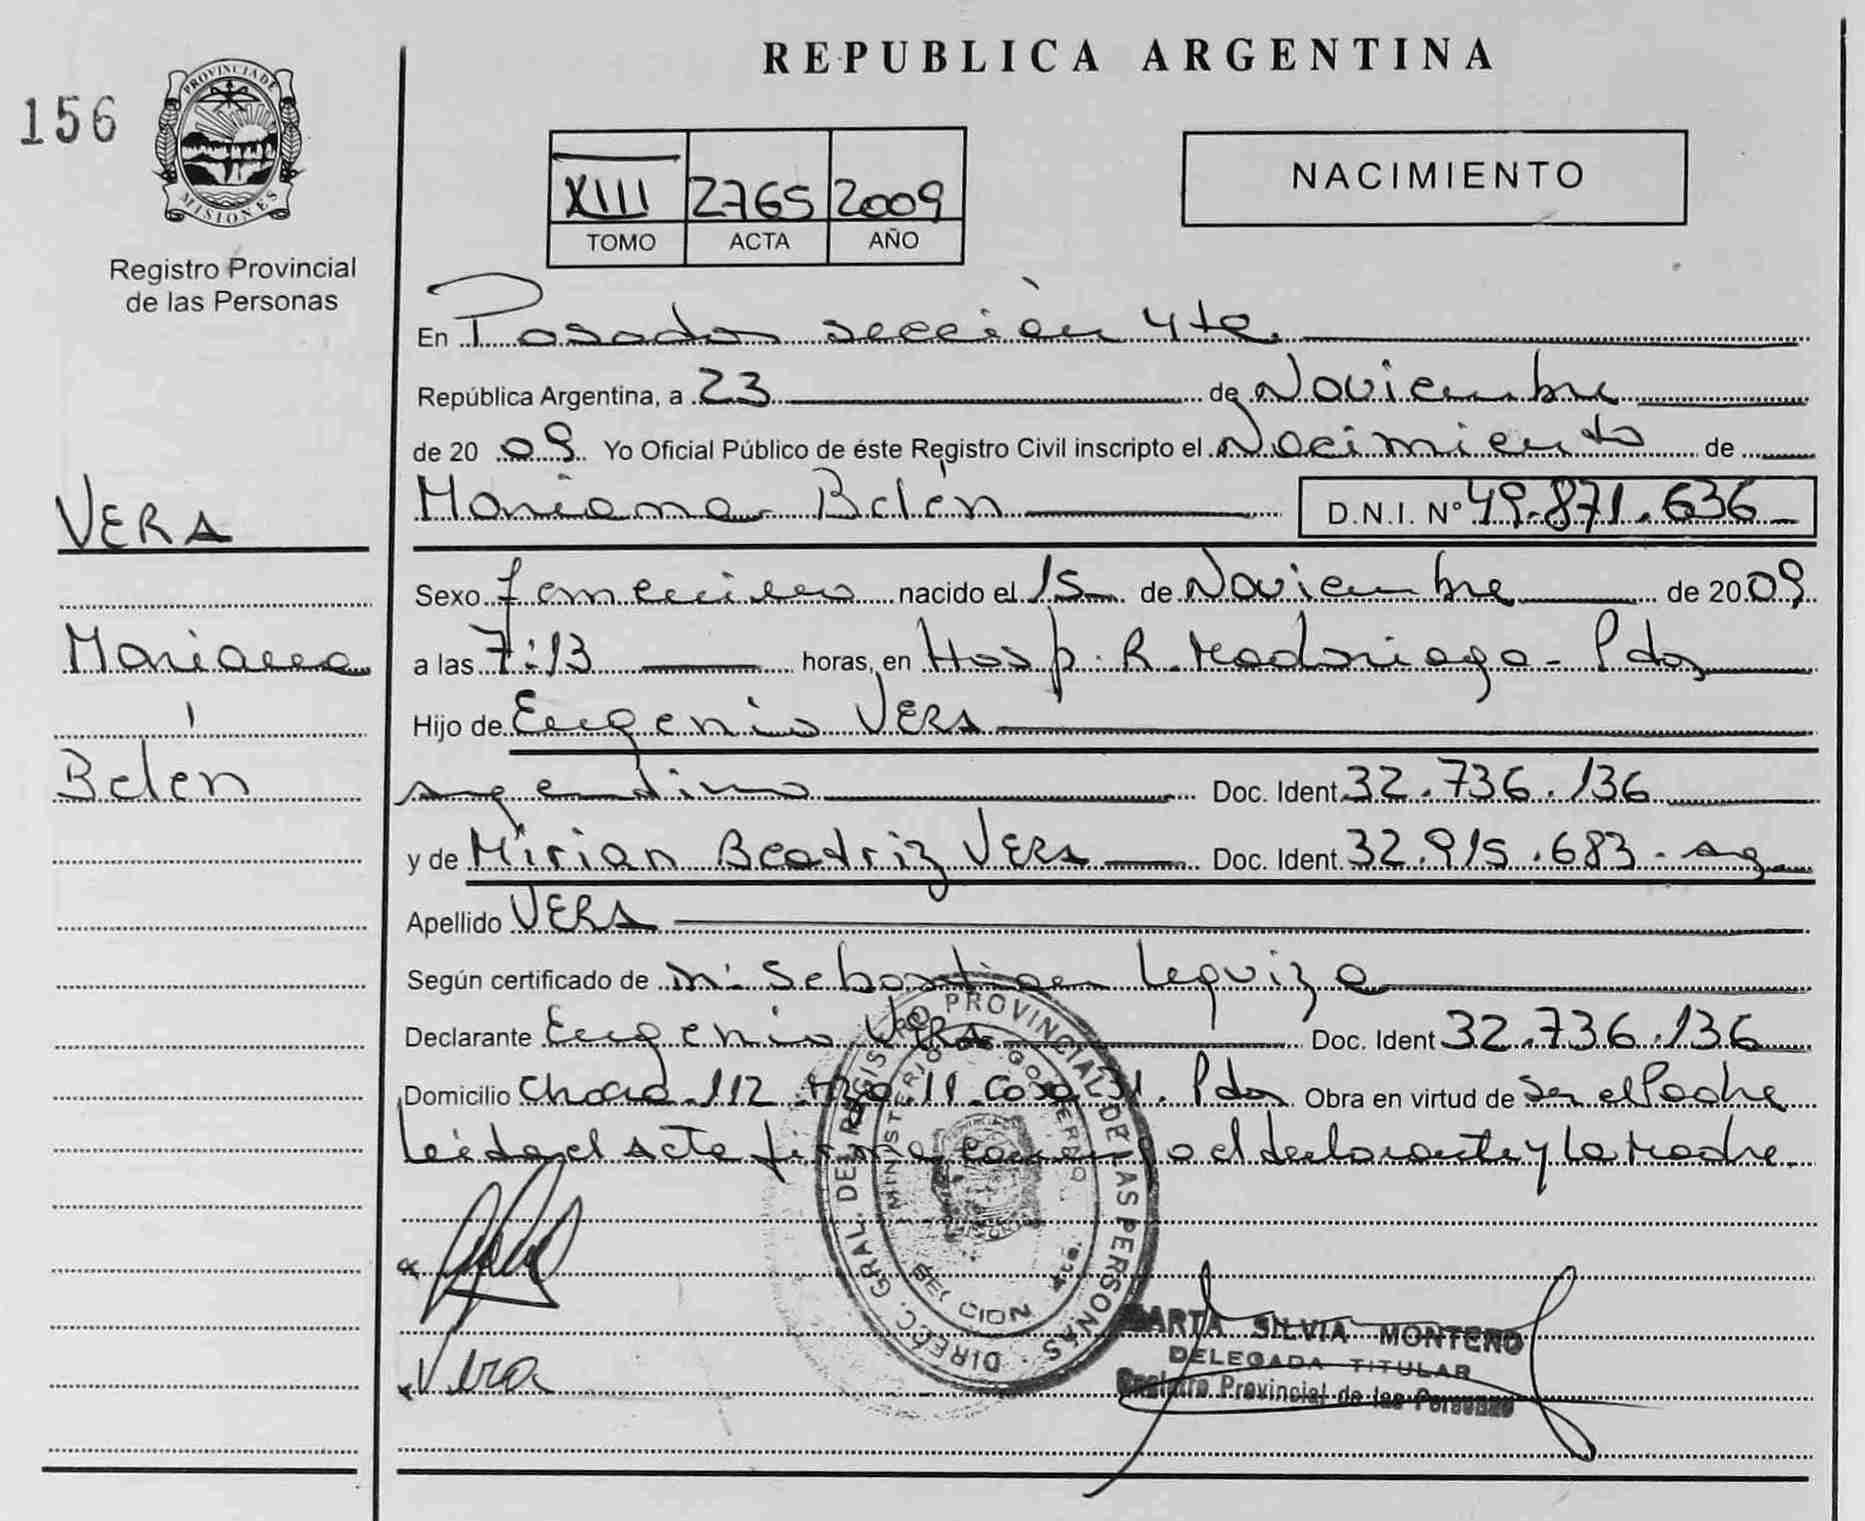 REPUBLICA ARGENTINA
156
PROVINCIA DE
MISIONES
Registro Provincial
de las Personas
XIII 2765 2009
TOMO ACTA AÑO
NACIMIENTO
En Posadas sección 4ta.
República Argentina, a 23 de Noviembre
de 20 09 Yo Oficial Público de éste Registro Civil inscripto el Nacimiento de
Mariana Belén D.N.I. Nº 49.871.636
VERA
Mariana
Belén
Sexo femenino nacido el 15 de Noviembre de 20 09
a las 7:13 horas, en Hosp. R. Madariaga - Pdas
Hijo de Eugenio VERA
argentino Doc. Ident. 32.736.136
y de Mirian Beatriz VERA Doc. Ident. 32.915.683 - arg.
Apellido VERA
Según certificado de Sebastian Leguiza
Declarante Eugenio VERA Doc. Ident 32.736.136
Domicilio Chacra 112 Mza 11 Casa 31. Pdas Obra en virtud de ser el Padre
Leída el Acta firma conmigo el declarante y la Madre.
DIRECC. GRAL. DEL REGISTRO PROVINCIAL DE LAS PERSONAS
MINISTERIO DE GOBIERNO
SECCION 4ta.
Vera
MARTA SILVIA MONTERO
DELEGADA TITULAR
Registro Provincial de las Personas